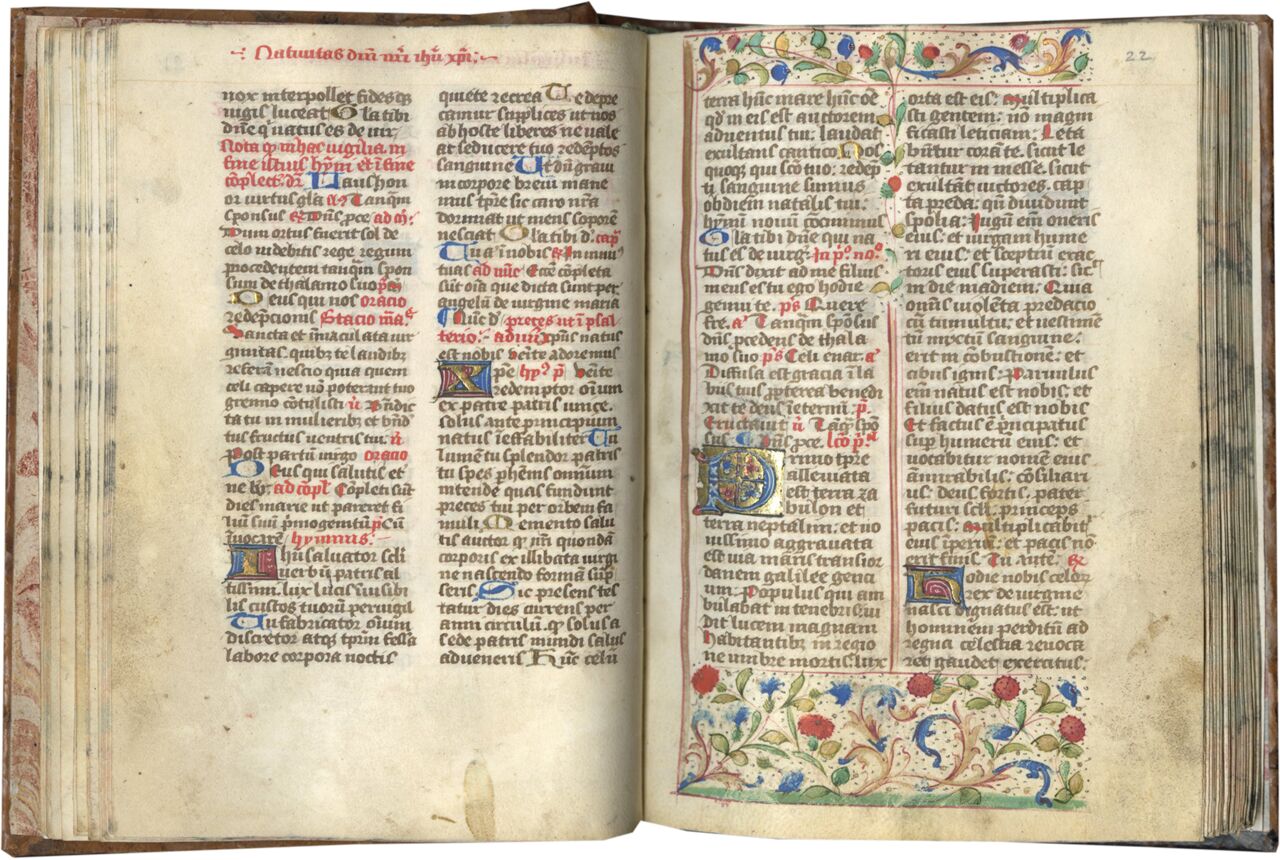 Natiuitas dñi nr̃i ihũ xp̃i
nox interpollet fidesq̃
iugis luceat Gl̃a tibi
dñe q̃ natus es de uir
Nota q̃ in hac uigilia in
fine istius hym̃ et ĩ fine
cõplect. dr̃ Laus hon
or uirtus gl̃a Tanq̃m
sponsus
Dum ortus fuerit sol de
celo uidebitis rege regum
procedentem tanq̃m spon
sum de thalamo suo p̃s
Deus qui nos oracio
redẽpcionis Stacio m̃a
Sancta et ĩmaculata uir
ginitas. quibz te laudibz
referã nescio quia quem
celi capere nõ poterant tuo
gremio cõtulisti Bñdic
ta tu in mulieribz et bñd
tus fructus uentris tui.
Post partũ uirgo oracio
Deus qui salutis et
ne. ad cõpl Cõpleti sũt
dies marie ut pareret fi
liũ suũ p̃mogenitũ p̃s Cũ
inuocarẽ hymnus
Ihũ saluator scl̃i
uerbũ patris al
tissimi. lux lucis ĩuisibi
lis custos tuorũ peruigil
Tu fabricator oĩum
discretor atq̃ tp̃rim fessa
labore corpora noctis
quiete recrea Te depre
camur supplices ut nos
ab hoste liberes ne uale
at seducere tuo redẽptos
sanguine Ut dũ graui
in corpore breui mane
mus tp̃re sic caro nr̃a
dormiat ut mens soporẽ
nesciat Gl̃a tibi d. cap̃
Tu a ĩ nobis
tuas ad nũc Ecce cõpleta
sũt oĩa que dicta sunt per
angelũ de uirgine maria
Nũc d. preces ut ĩ psal
terio. ad Xp̃us natus
est nobis ueñte adoremus
Xp̃e Ueñte
redemptor oĩum
ex patre patris unice.
solus ante principium
natus ĩestabiliter Tu
lumẽ tu splendor patris
tu spes p̃hemis omnium
intende quas fundunt
preces tui per orbem fa
muli Memento salu
tis auctor q̃ nr̃i quondã
corporis ex illibata uirgi
ne nascendo formã sũp
seris. Sic presens tes
tatur dies currens per
anni circulũ. q̃ solus a
sede patris mundi salus
adueneris Hũc celũ
22
terra hũc mare hũc oẽ
qd̃ in eis est auctorem
aduentus tui. laudat
exultans cantico Nos
quoq̃ qui sc̃o tuo. redẽp
ti sanguine sumus
ob diem natalis tui.
hym̃ nouũ cõcinimus
Gl̃a tibi dñe qui na
tus es de uirg. In p̃º. nõ.
Dñs dixit ad me filius
meus es tu ego hodie
genui te. p̃s Quare
fre. a Tanq̃m spõsus
dñs p̃cedens de thala
mo suo p̃s Celi enar. a
Diffusa est gracia ĩ la
bus tuis p̃pterea benedi
xit te deus ĩ eterñ. p̃.
Eructauit Tãq̃ spõ
sus Dñs p̃ce. lc̃o p̃ª
Primo tp̃re
alleuiata
est terra za
bulon et
terra neptalim. et no
uissimo aggrauata
est uia maris transior
danem galilee genci
um. Populus qui am
bulabat in tenebris ui
dit lucem magnam
habitantibz in regio
ne umbre mortis. lux
orta est eis. Multiplica
sti gentem. nõ magni
ficasti leticiam. Leta
bũtur corã te. sicut le
tantur in messe. sicut
exultãt uictores. cap
ta preda. qñ diuidunt
spolia. Iugũ eñ oneris
eius. et uirgam hume
ri eius. et sceptrũ exac
toris eius superasti. sic̃
in die madiem. Quia
omĩs uiolẽta predacio
cũ tumultu. et uestimẽ
tũ mixtũ sanguine.
erit in cõbustionẽ. et
cibus ignis. Paruulus
eñi natus est nobis. et
filius datus est nobis
Et factus est p̃ncipatus
sup̃ humerũ eius. et
uocabitur nomẽ eius
ãmirabilis. cõsiliari
us. deus fortis. pater
futuri scl̃i. princeps
pacis. Multiplicabit̃
eius ĩperiũ. et pacis nõ
erit finis. Tu autẽ.
Hodie nobis celorz
rex de uirgine
nasci dignatus est. ut
hominem perditũ ad
regna celestia reuoca
ret gaudet exercitus.